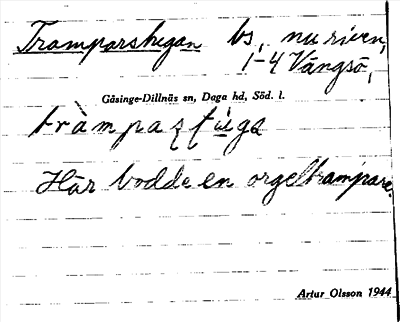 Tramparstugan bs, nu riven,
1-4 Vängsö,
Gåsinge-Dillnäs sn, Daga hd, Söd. l.
Här bodde en orgeltrampare.
Artur Olsson 1944